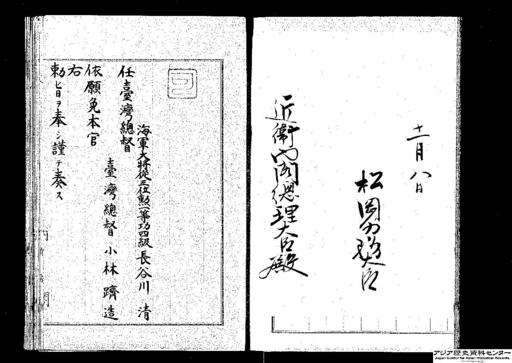 十一月八日
松岡外務大臣
近衛内閣総理大臣殿
海軍大将従三位勲一等功四級 長谷川 清
任臺灣總督
臺灣總督 小林躋造
依願免本官
右
勅旨ヲ奉シ謹テ奏ス
アジア歴史資料センター
Japan Center for Asian Historical Records